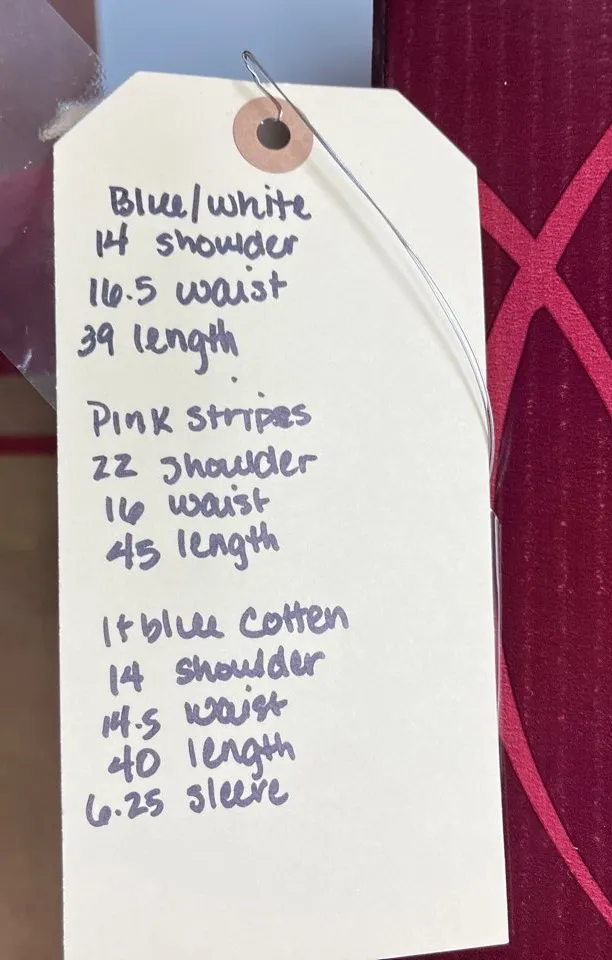 Blue/white
14 shoulder
16.5 waist
39 length
Pink stripes
22 shoulder
16 waist
45 length
lt blue cotten
14 shoulder
14.5 waist
40 length
6.25 sleeve